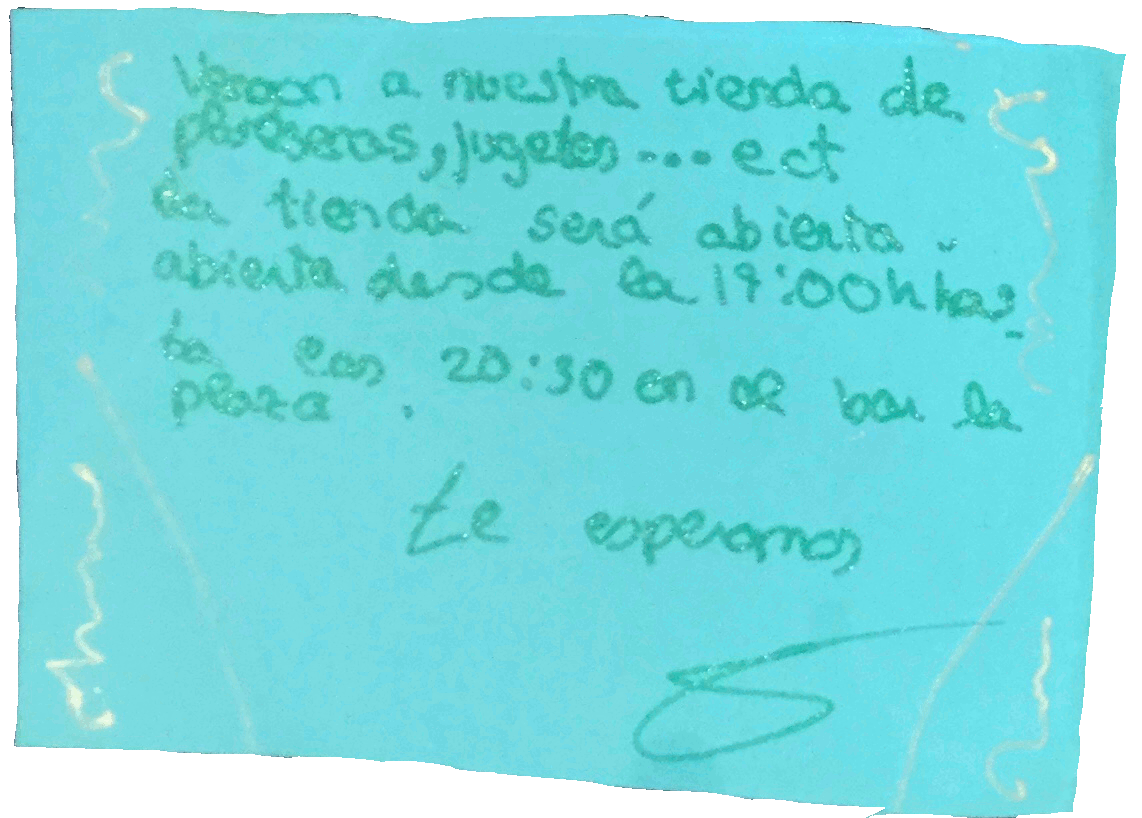 Vengan a nuestra tienda de
pulseras, jugetes ... ect
la tienda será abierta.
abierta desde la 19:00h has_
ta las 20:30 en el bar la
plaza.
te esperamos